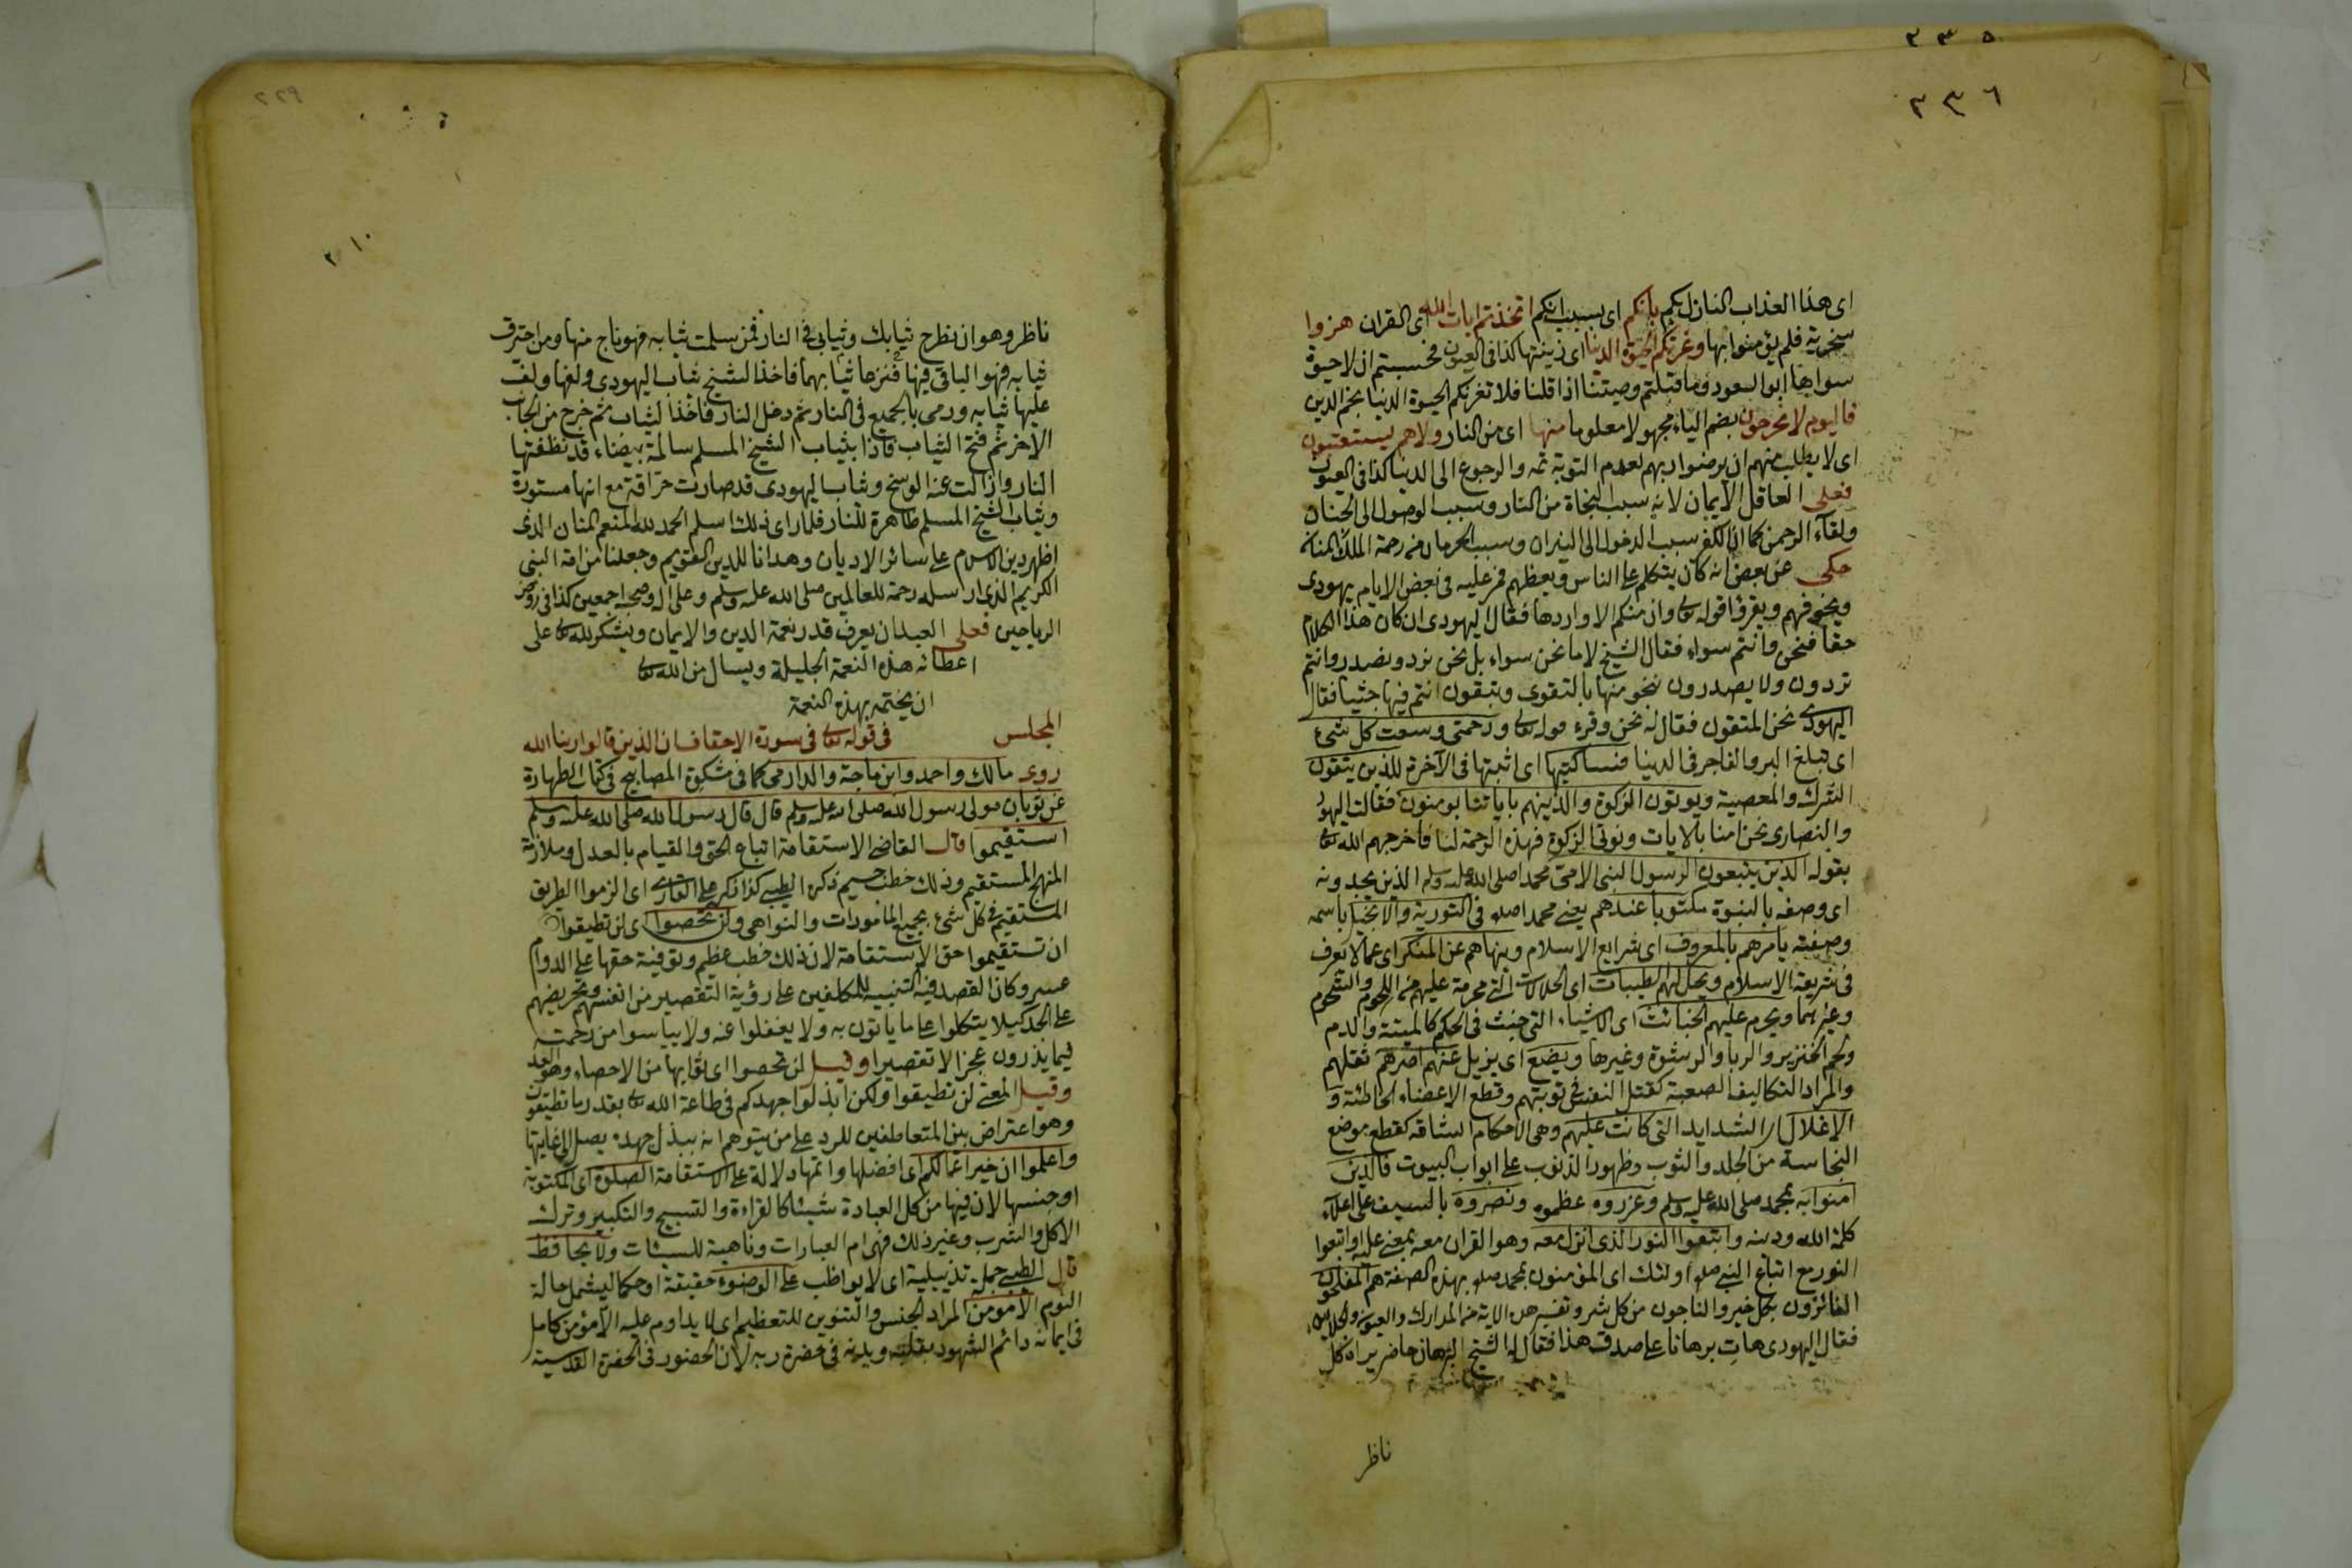 ٢٣٥
٢٣٦
اى هذا العذاب النازل بكم بانكم اى بسبب انكم اتخذتم ايات الله اى القران هزوا
سخرية فلم يؤمنوا بها وغرتكم الحيوة الدنيا اى زينتها كذا فى العيون فحسبتم ان لا حيوة
سواها ابو السعود وما قبلتم وصيتنا اذا قلنا فلا تغرنكم الحيوة الدنيا نجم الدين
فاليوم لا يخرجون بضم الياء مجهولا معلوما منها اى من النار ولا هم يستعتبون
اى لا يطلب منهم ان يرضوا ربهم لعدم التوبة ثمه والرجوع الى الدنيا كذا فى العيون
فعلى العاقل الايمان لانه سبب النجاة من النار وسبب الوصول الى الجنان
ولقاء الرحمن كما ان الكفر سبب الدخول الى النيران وسبب الحرمان من رحمة الملك المنان
حكى عن بعض انه كان يتكلم على الناس ويعظهم فمر عليه فى بعض الايام يهودى
ويخوفهم ويقرؤا قوله تعالى وان منكم الا واردها فقال اليهودى ان كان هذا الكلام
حقا فنحن وانتم سواء فقال الشيخ لا ما نحن سواء بل نحن نرد ونصدر وانتم
تردون ولا يصدرون ننجو منها بالتقوى وتبقون انتم فيها جثيا فقال
اليهودى نحن المتقون فقال له نحن وقرء قوله تعالى ورحمتى وسعت كل شىء
اى تبلغ البر والفاجر فى الدينا فساكتبها اى اثبتها فى الآخرة للذين يتقون
الشرك والمعصية ويوتون الزكوة والذينهم باياتنا يومنون فقالت اليهود
والنصارى نحن امنا بالايات ونوتى الزكوة فهذه الرحمة لنا فاخرجهم الله تعالى
بقوله الذين يتبعون الرسول النبى الامى محمدا صلى الله عليه وسلم الذين يجدونه
اى وصفه بالنبوة مكتوبا عندهم يعنى محمدا صلعم فى التورية والانجيل باسمه
وصفته يامرهم بالمعروف اى شرايع الاسلام وينهاهم عن المنكر اى عما لا يعرف
فى شريعة الاسلام ويحل لهم الطيبات اى الحلالات التى محرمة عليهم من اللحوم والشحوم
وغيرهما ويحرم عليهم الخبائث اى الاشياء التى خبثت فى الحكم كالميتة والدم
ولحم الخنزير والربا والرشوة وغيرها ويضع اى يزيل عنهم اصرهم ثقلهم
والمراد التكاليف الصعبة كقتل النفس فى توبتهم وقطع الاعضاء الخاطئة و
الاغلال الشدايد التى كانت عليهم وهى الاحكام الشاقه كقطع موضع
النجاسة من الجلد والثوب وظهور الذنوب على ابواب البيوت فالذين
امنوا به بمحمد صلى الله عليه وسلم وعزروه عظموه ونصروه بالسيف على اعلاء
كلمة الله ودينه واتبعوا النور الذى انزل معه وهو القران معه بمعنى عليه او اتبعوا
النور مع اتباع النبى صلعم اولئك اى المؤمنون بمحمد صلعم بهذه الصفة هم المفلحون
الفائزون بكل خير والناجون من كل شر وتفسير هذه الاية من المدارك والعيون والجلالين
فقال اليهودى هات برهانا على صدق هذا فقال له الشيخ البرهان حاضر يراه كل
ناظر
٢١٠
ناظر وهو ان نطرح ثيابك وثيابى فى النار فمن سلمت ثيابه فهو ناج منها ومن احترق
ثيابه فهو الباقى فيها فنزعا ثيابهما فاخذ الشيخ ثياب اليهودى ولفها ولف
عليها ثيابه ورمى بالجميع فى النار ثم دخل النار فاخذ الثياب ثم خرج من الجانب
الاخر ثم فتح الثياب فاذا بثياب الشيخ المسلم سالمة بيضاء قد نظفتها
النار وازالت عنه الوسخ وثياب اليهودى قد صارت حراقة مع انها مستورة
وثياب الشيخ المسلم ظاهرة للنار فلما راى ذلك اسلم الحمد لله المنعم المنان الذى
اظهر دين الاسلام على سائر الاديان وهدانا للدين القويم وجعلنا من امة النبى
الكريم الذى ارسله رحمة للعالمين صلى الله عليه وسلم وعلى اله وصحبه اجمعين كذا فى روض
الرياحين فعلى العبد ان يعرف قدر نعمة الدين والايمان ويشكر لله تعالى على
اعطائه هذه النعمة الجليلة ويسال من الله تعالى
ان يختمه بهذه النعمة
المجلس فى قوله تعالى فى سورة الاحقاف ان الذين قالوا ربنا الله
روى مالك واحمد وابن ماجة والدارمى كما فى مشكوة المصابيح فى كتاب الطهارة
عن ثوبان مولى رسول الله صلى الله عليه وسلم قال قال رسول الله صلى الله عليه وسلم
استقيموا قال القاضى الاستقامة اتباع الحق والقيام بالعدل وملازمة
المنهج المستقيم وذلك خطب جسيم ذكره الطيبى كذا ذكره على القارى اى الزموا الطريق
المستقيم فى كل شىء بجميع المامورات والنواهى ولن تحصوا اى لن تطيقوا
ان تستقيموا حق الاستقامة لان ذلك خطب عظيم وتوفية حقها على الدوام
عسير وكان القصد فيه التنبيه للمكلفين على رؤية التقصير من انفسهم وتحريضهم
على الجد كيلا يتكلوا على ما ياتون به ولا يغفلوا عنه ولا يياسوا من رحمته
فيما يذرون عجزا لا تقصيرا وقيل لن تحصوا اى ثوابها من الاحصاء وهو العد
وقيل المعنى لن تطيقوا ولكن ابذلوا جهدكم فى طاعة الله تعالى بقدر ما تطيقون
وهو اعتراض بين المتعاطفين للرد على من يتوهم انه ببذل جهده يصل الى غايتها
واعلموا ان خير اعمالكم اى افضلها واتمها دلالة على الاستقامة الصلوة اى المكتوبة
او جنسها لان فيها من كل العبادة شيئا كالقراءة والتسبيح والتكبير وترك
الاكل والشرب وغير ذلك فهى ام العبادات وناهية للسيئات ولا يحافظ
قال الطيبى جملة تذييلية اى لا يواظب على الوضوء حقيقة او حكما ليشمل حالة
النوم الا مؤمن المراد الجنس والتنوين للتعظيم اى لا يداوم عليه الا مؤمن كامل
فى ايمانه دائم الشهود بقلبه وبدنه فى حضرة ربه لان الحضور فى الحضرة القدسية